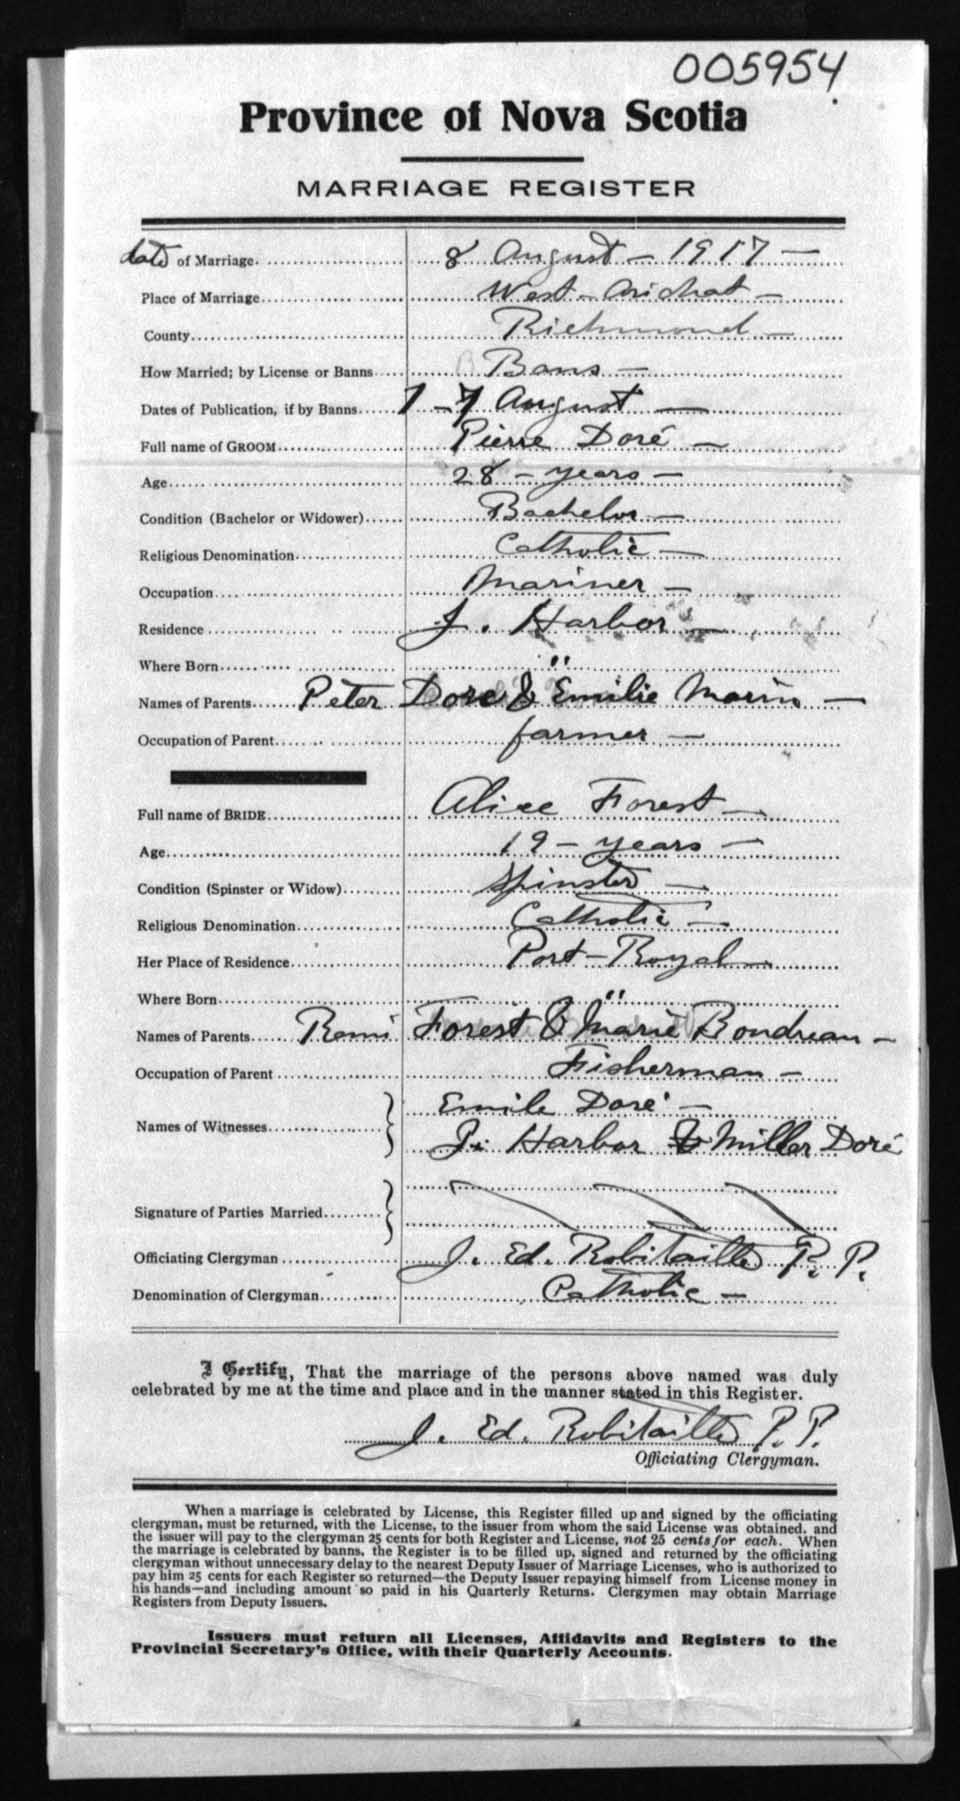 005954
Province of Nova Scotia
MARRIAGE REGISTER
date of Marriage. 8 August - 1917 -
Place of Marriage West - Arichat -
County Richmond -
How Married; by License or Banns Bans -
Dates of Publication, if by Banns 1 - 7 August -
Full name of GROOM Pierre Doré -
Age 28 - years -
Condition (Bachelor or Widower) Bachelor -
Religious Denomination Catholic -
Occupation Mariner -
Residence J. Harbor -
Where Born "
Names of Parents Peter Dore & Emilie Marin -
Occupation of Parent farmer -
Full name of BRIDE Alice Forest -
Age 19 - years -
Condition (Spinster or Widow) Spinster -
Religious Denomination Catholic -
Her Place of Residence Port - Royal -
Where Born "
Names of Parents Remi Forest & Marie Boudreau -
Occupation of Parent Fisherman -
Emile Doré -
Names of Witnesses J. Harbor & Miller Doré
Signature of Parties Married
Officiating Clergyman J. Ed. Robitaille P. P.
Denomination of Clergyman Catholic -
I Certify, That the marriage of the persons above named was duly
celebrated by me at the time and place and in the manner stated in this Register.
J. Ed. Robitaille P. P.
Officiating Clergyman.
When a marriage is celebrated by License, this Register filled up and signed by the officiating
clergyman, must be returned, with the License, to the issuer from whom the said License was obtained, and
the issuer will pay to the clergyman 25 cents for both Register and License, not 25 cents for each. When
the marriage is celebrated by banns, the Register is to be filled up, signed and returned by the officiating
clergyman without unnecessary delay to the nearest Deputy Issuer of Marriage Licenses, who is authorized to
pay him 25 cents for each Register so returned—the Deputy Issuer repaying himself from License money in
his hands—and including amount so paid in his Quarterly Returns. Clergymen may obtain Marriage
Registers from Deputy Issuers.
Issuers must return all Licenses, Affidavits and Registers to the
Provincial Secretary's Office, with their Quarterly Accounts.